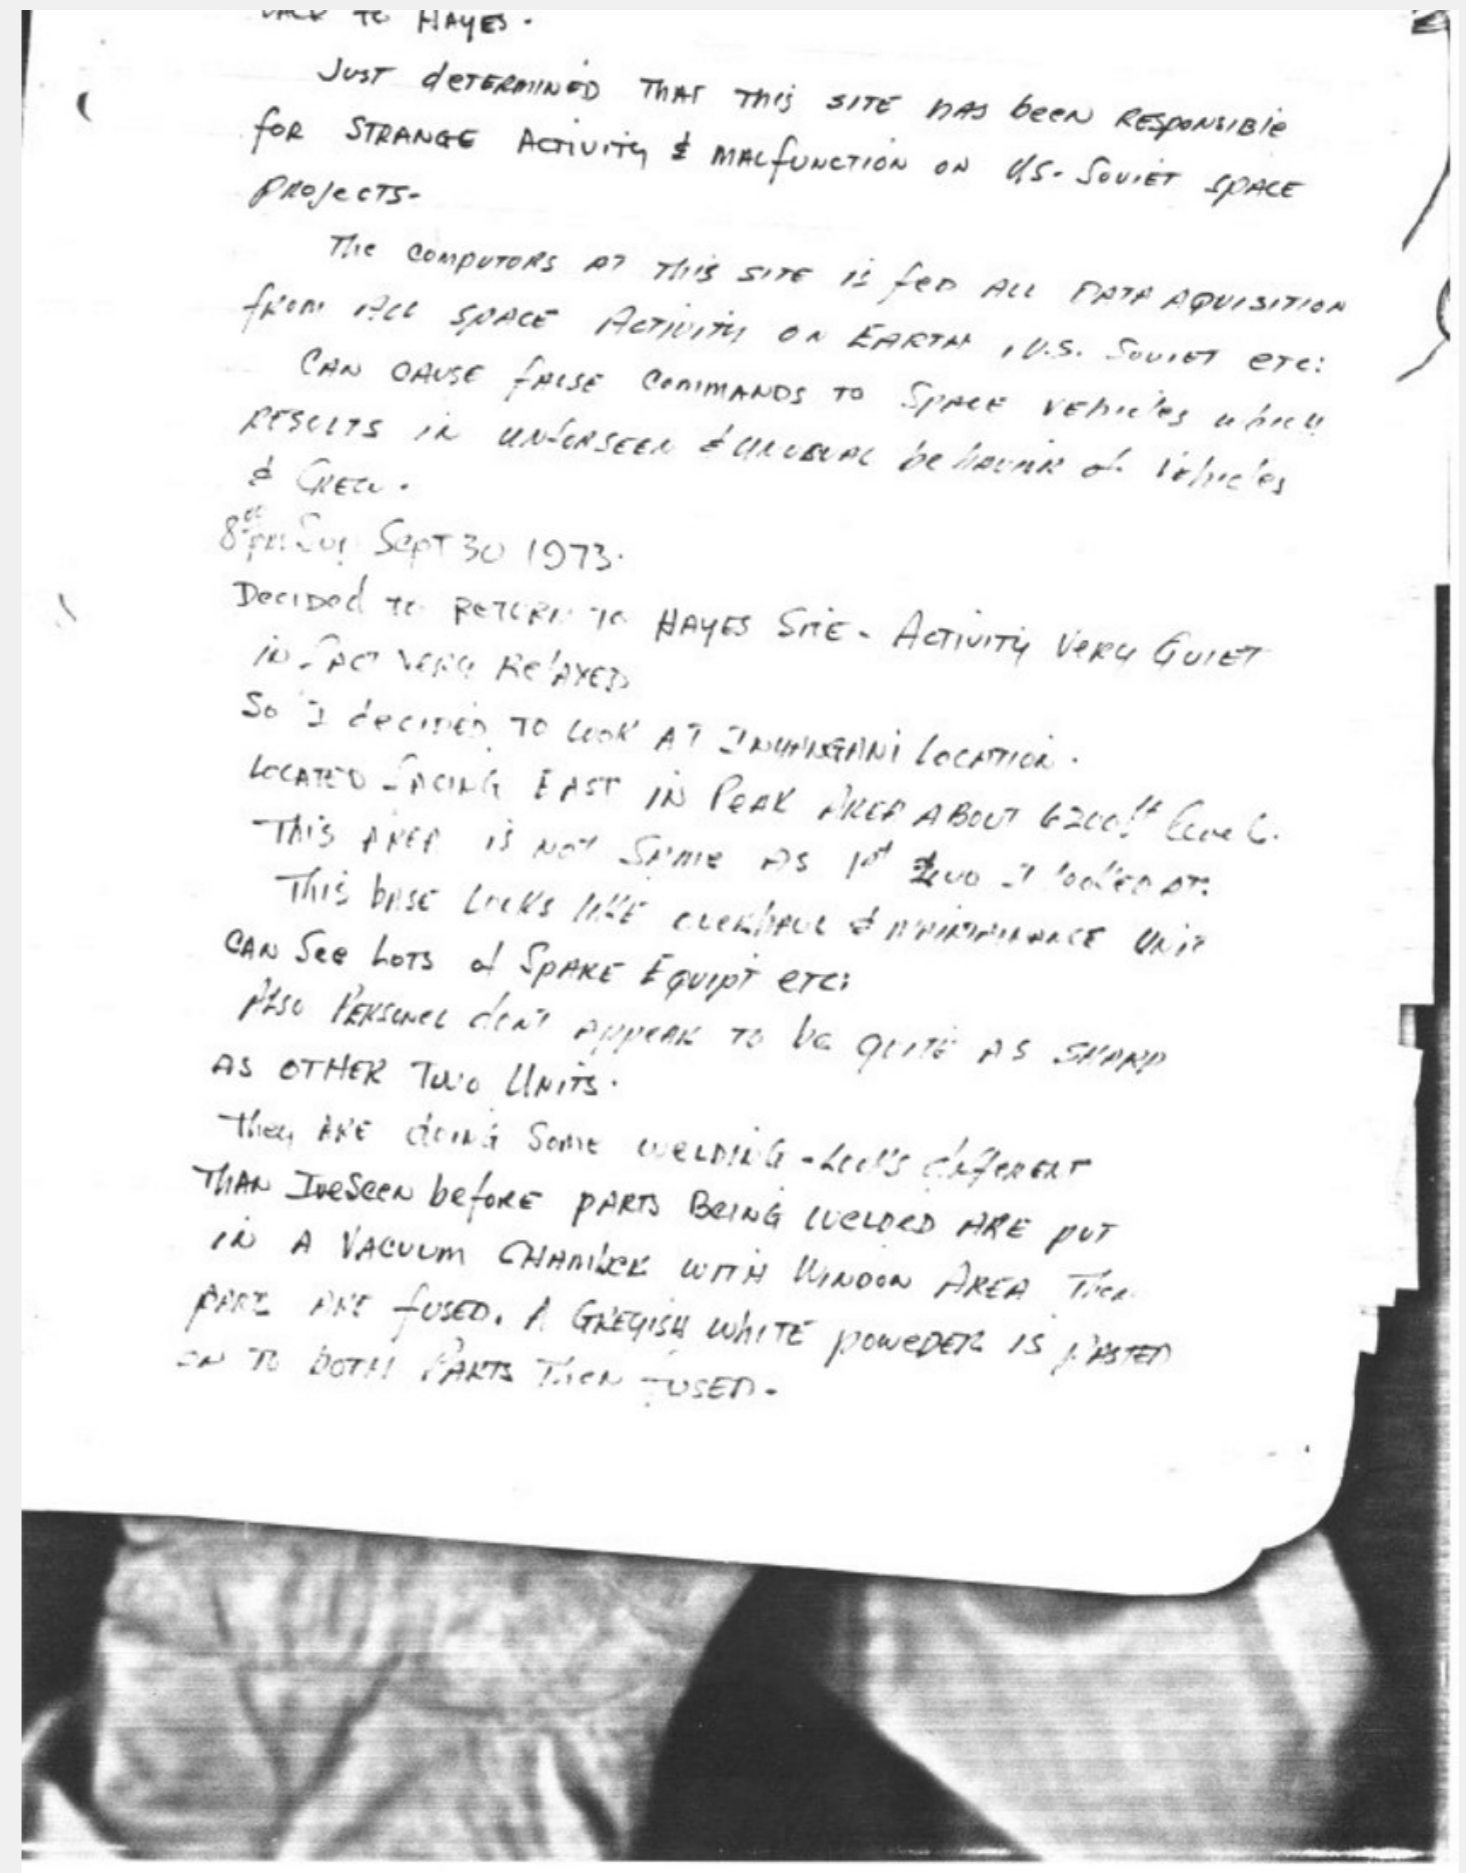 BACK TO HAYES.
JUST determined THAT This SITE HAS been RESPONSIBle
for STRANGE ACTIVITY & MALfUNCTION ON U.S. SOVIET SPACE
PROJECTS.
The COMPUTORS AT This SITE is fed ALL DATA AQUISITION
from ALL SPACE ACTIVITY ON EARTH, U.S. SOVIET etc:
CAN CAUSE fALSE COMMANDS TO SPACE VEhicles which
RESULTS IN UNFORSEEN & UNUSUAL behavior of Vehicles
& CREW.
8 00 pm Sun SepT 30 1973.
Decided to RETURN TO HAYES SITE - ACTIVITY Very QUIET
in fact very RelAXED
So I decided TO LOOK AT INYANGANI LOCATION.
LOCATED fACING EAST IN PeAK AREA ABOUT 6200 ft
This AREA is NOT SAME AS 1st two I looked AT.
This bASE LOOKS LIKE overhAUL & MAINTAINANCE UNIT
CAN See LOTS of SPARE EQUIPT eTC:
Also PERSONEL don't APPEAR TO be QUITE AS SHARP
AS OTHER TWO UNITS.
They ARE doing Some WELDING - Looks differENT
THAN IveSeen before PARTS BEING WELDED ARE PUT
IN A VACUUM CHAMbER WITH WINDOW AREA Then
PARTS ARE fUSED. A GREYISH WHITE POWEDER IS PASTED
ON TO BOTH PARTS Then FUSED.